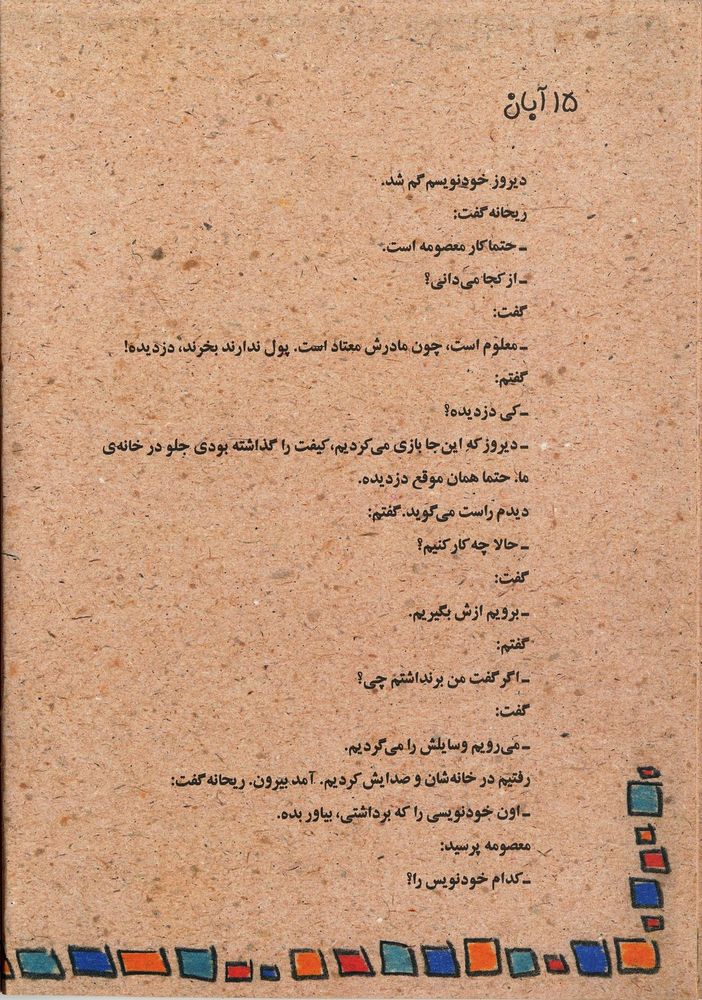 ۱۵ آبان
دیروز خودنویسم گم شد.
ریحانه گفت:
ـ حتما کار معصومه است.
ـ از کجا می‌دانی؟
گفت:
ـ معلوم است، چون مادرش معتاد است. پول ندارند بخرند، دزدیده!
گفتم:
ـ کی دزدیده؟
ـ دیروز که این‌جا بازی می‌کردیم، کیفت را گذاشته بودی جلو در خانه‌ی
ما. حتما همان موقع دزدیده.
دیدم راست می‌گوید. گفتم:
ـ حالا چه کار کنیم؟
گفت:
ـ برویم ازش بگیریم.
گفتم:
ـ اگر گفت من برنداشتم چی؟
گفت:
ـ می‌رویم وسایلش را می‌گردیم.
رفتیم در خانه‌شان و صدایش کردیم. آمد بیرون. ریحانه گفت:
ـ اون خودنویسی را که برداشتی، بیاور بده.
معصومه پرسید:
ـ کدام خودنویس را؟